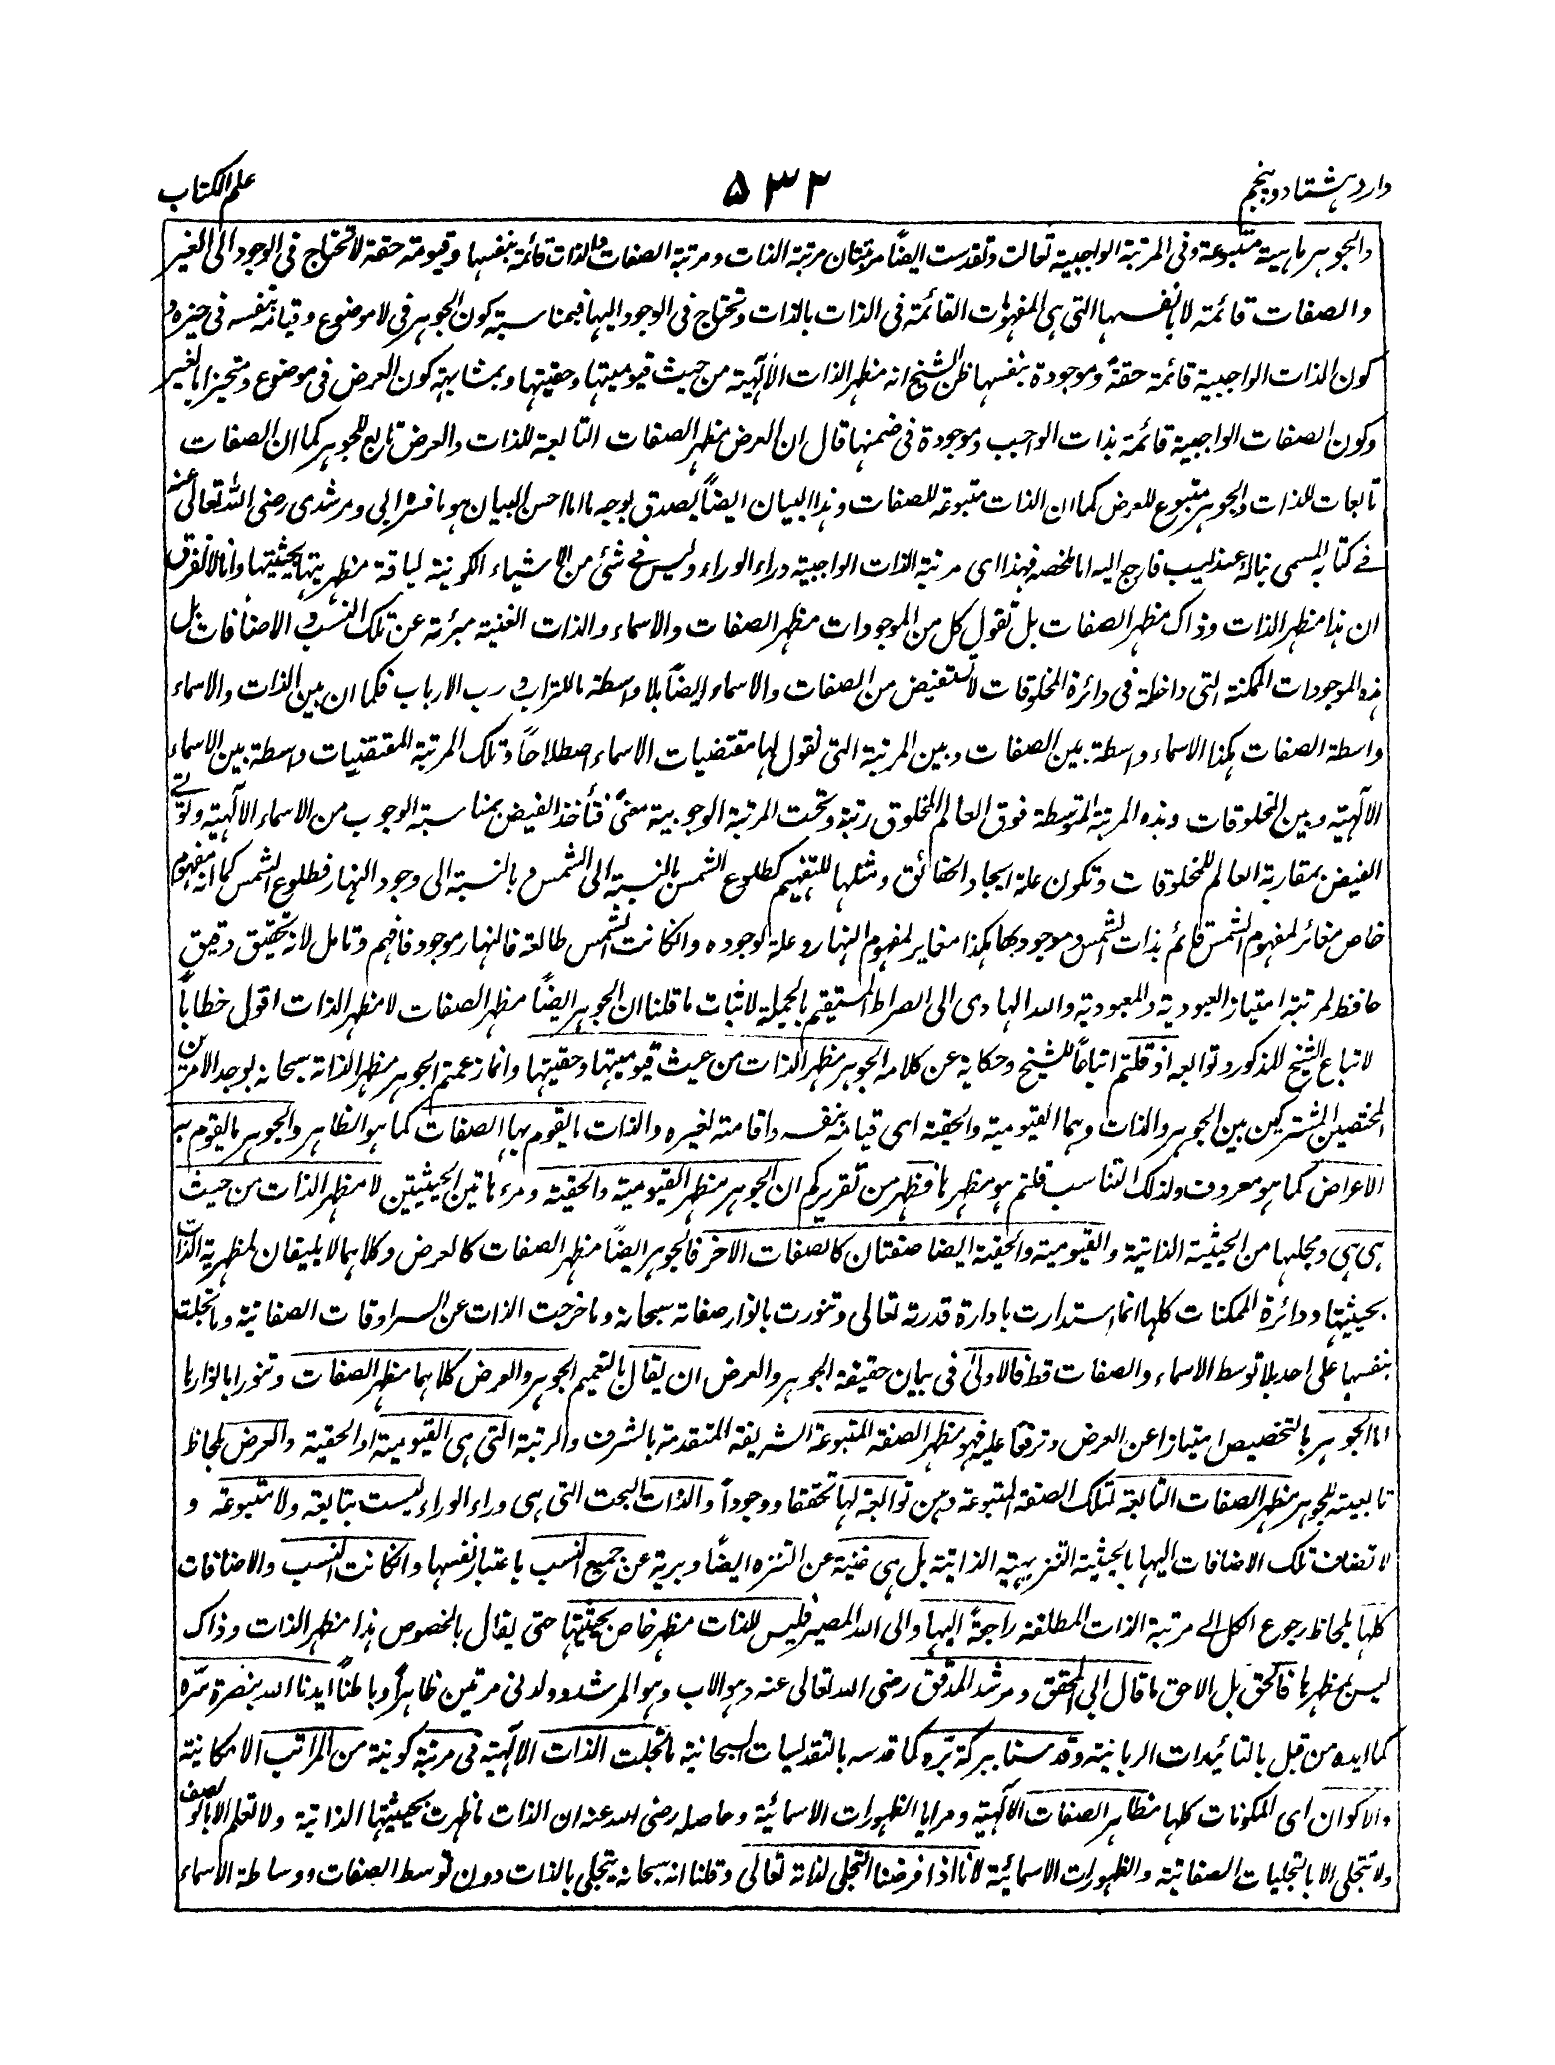 وارد ہشتاد و پنجم
۵۳۲
علم الکتاب
والجوہر ماہیۃ متبوعۃ وفی المرتبۃ الواجبیۃ تعالت وتقدست ایضاً مرتبتان مرتبۃ الذات ومرتبۃ الصفات فالذات قائمۃ بنفسہا وقیومۃ حقۃ لا تحتاج فی الوجود الی الغیر
والصفات قائمۃ لا بانفسہا التی ہی المفہومات القائمۃ فی الذات بالذات وتحتاج فی الوجود الیہا فبمناسبۃ کون الجوہر فی لا موضوع وقیامہ بنفسہ فی حیزہ و
کون الذات الواجبیۃ قائمۃ حقۃً وموجودۃ بنفسہا ظن الشیخ انہ مظہر الذات الالٰہیۃ من حیث قیومیتہا وحقیتہا وبمشابہۃ کون العرض فی موضوع ومتحیزا بالغیر
وکون الصفات الواجبیۃ قائمۃ بذات الواجب وموجودۃ فی ضمنہا قال ان العرض مظہر الصفات التابعۃ للذات والعرض تابع للجوہر کما ان الصفات
تابعات للذات والجوہر متبوع للعرض کما ان الذات متبوعۃ للصفات وہذا البیان ایضاً یصدق بوجہ ما اما احسن البیان ہو ما فسر ابی ومرشدی رضی اللہ تعالی عنہ
فی کتابہ المسمی بنالۂ عندلیب فارجع الیہ اما ملخصہ فہذا ای مرتبۃ الذات الواجبیۃ وراء الوراء ولیس فی شئ من الاشیاء الکونیۃ لیاقۃ مظہریتہا بحیثیتہا وانا لا نفرق
ان ہذا مظہر الذات وذاک مظہر الصفات بل نقول کل من الموجودات مظہر الصفات والاسماء والذات الغنیۃ مبرئۃ عن تلک النسب والاضافات بل
ہذہ الموجودات الممکنۃ التی داخلۃ فی دائرۃ المخلوقات لا تستفیض من الصفات والاسماء ایضاً بلا واسطۃ ما للتراب و رب الارباب فکما ان بین الذات والاسماء
واسطۃ الصفات ہکذا الاسماء واسطۃ بین الصفات وبین المرتبۃ التی نقول لہا مقتضیات الاسماء اصطلاحاً وتلک المرتبۃ المقتضیات واسطۃ بین الاسماء
الالٰہیۃ وبین المخلوقات وہذہ المرتبۃ المتوسطۃ فوق العالم المخلوق رتبۃ وتحت المرتبۃ الوجوبیۃ معنیً فتأخذ الفیض بمناسبۃ الوجوب من الاسماء الالٰہیۃ وتؤتی
الفیض بمقاربۃ العالم للمخلوقات وتکون علۃ ایجاد الحقائق ومثلہا للتفہیم کطلوع الشمس بالنسبۃ الی الشمس و بالنسبۃ الی وجود النہار فطلوع الشمس کما انہ مفہوم
خاص مغائر لمفہوم الشمس قائم بذات الشمس وموجود بہا ہکذا مغایر لمفہوم النہار وعلۃ لوجودہ وان کانت الشمس طالعۃ فالنہار موجود فافہم وتامل لانہ تحقیق دقیق
حافظ لمرتبۃ امتیاز العبودیۃ والمعبودیۃ واللہ الہادی الی الصراط المستقیم بالجملۃ لاثبات ما قلنا ان الجوہر ایضاً مظہر الصفات لا مظہر الذات اقول خطاباً
لاتباع الشیخ المذکور وتوابعہ اذ قلتم اتباعاً للشیخ وحکایۃ عن کلامہ الجوہر مظہر الذات من حیث قیومیتہا وحقیتہا وانما زعمتم الجوہر مظہر الذاتہ سبحانہ بوجد الامرین
المختصین المشترکین بین الجوہر والذات وہما القیومیۃ والحقیۃ ای قیامہ بنفسہ واقامتہ لغیرہ والذات ما یقوم بہا الصفات کما ہو الظاہر والجوہر ما یقوم بہ
الاعراض کما ہو معروف ولذلک التناسب قلتم ہو مظہرہا فظہر من تقریرکم ان الجوہر مظہر القیومیۃ والحقیۃ ومرءٰۃ ہاتین الحیثیتین لا مظہر الذات من حیث
ہی ہی ومجلیہا من الحیثیۃ الذاتیۃ والقیومیۃ والحقیۃ ایضا صفتان کالصفات الاخر فالجوہر ایضاً مظہر الصفات کالعرض وکلاہما لا یلیقان لمظہریۃ الذات
بحیثیتہا ودائرۃ الممکنات کلہا انما استدارت بادارۃ قدرتہ تعالی وتنورت بانوار صفاتہ سبحانہ وما خرجت الذات عن السرادقات الصفاتیۃ وما تجلت
بنفسہا علی احد بلا توسط الاسماء والصفات قط فالاولیٰ فی بیان حقیقۃ الجوہر والعرض ان یقال بالتعمیم الجوہر والعرض کلاہما مظہر الصفات وتنورا بانوارہا
اما الجوہر بالتخصیص امتیازا عن العرض وترفعا علیہ فہو مظہر الصفۃ المتبوعۃ الشریفۃ المتقدمۃ بالشرف والرتبۃ التی ہی القیومیۃ او الحقیۃ والعرض بلحاظ
تابعیتہ للجوہر مظہر الصفات التابعۃ لتلک الصفۃ المتبوعۃ ومن توابعۃ لہا تحققا ووجوداً والذات البحت التی ہی وراء الوراء لیست بتابعۃ ولا متبوعۃ و
لا تضاف تلک الاضافات الیہا بالحیثیۃ التنزیہیۃ الذاتیۃ بل ہی غنیۃ عن التنزہ ایضاً وبریۃ عن جمیع النسب باعتبار نفسہا وان کانت النسب والاضافات
کلہا بلحاظ رجوع الکل الی مرتبۃ الذات المطلقۃ راجعۃً الیہا والی اللہ المصیر فلیس للذات مظہر خاص بحیثیتہا حتی یقال بالخصوص ہذا مظہر الذات وذاک
لیس بمظہرہا فالحق بل الاحق ما قال ابی المحقق ومرشد المدقق رضی اللہ تعالی عنہ وہو الاب وہو المرشد وولدنی مرتین ظاہراً وباطناً ایدنا اللہ بنصرۃ سرّہ
کما ایدہ من قبل بالتائیدات الربانیۃ وقدسنا ببرکۃ برّہ کما قدسہ بالتقدیسات السبحانیۃ ما تجلت الذات الالٰہیۃ فی مرتبۃ کونیۃ من المراتب الامکانیۃ
والاکوان ای المکونات کلہا مظاہر الصفات الالٰہیۃ ومرایا الظہورات الاسمائیۃ وحاصلہ رضی اللہ عنہ ان الذات ما ظہرت بحیثیتہا الذاتیۃ ولا تعلم الا بالوصف
ولا تتجلی الا بالتجلیات الصفاتیۃ والظہورات الاسمائیۃ لانا اذا فرضنا التجلی لذاتہ تعالی وقلنا انہ سبحانہ یتجلی بالذات دون توسط الصفات ووساطۃ الاسماء